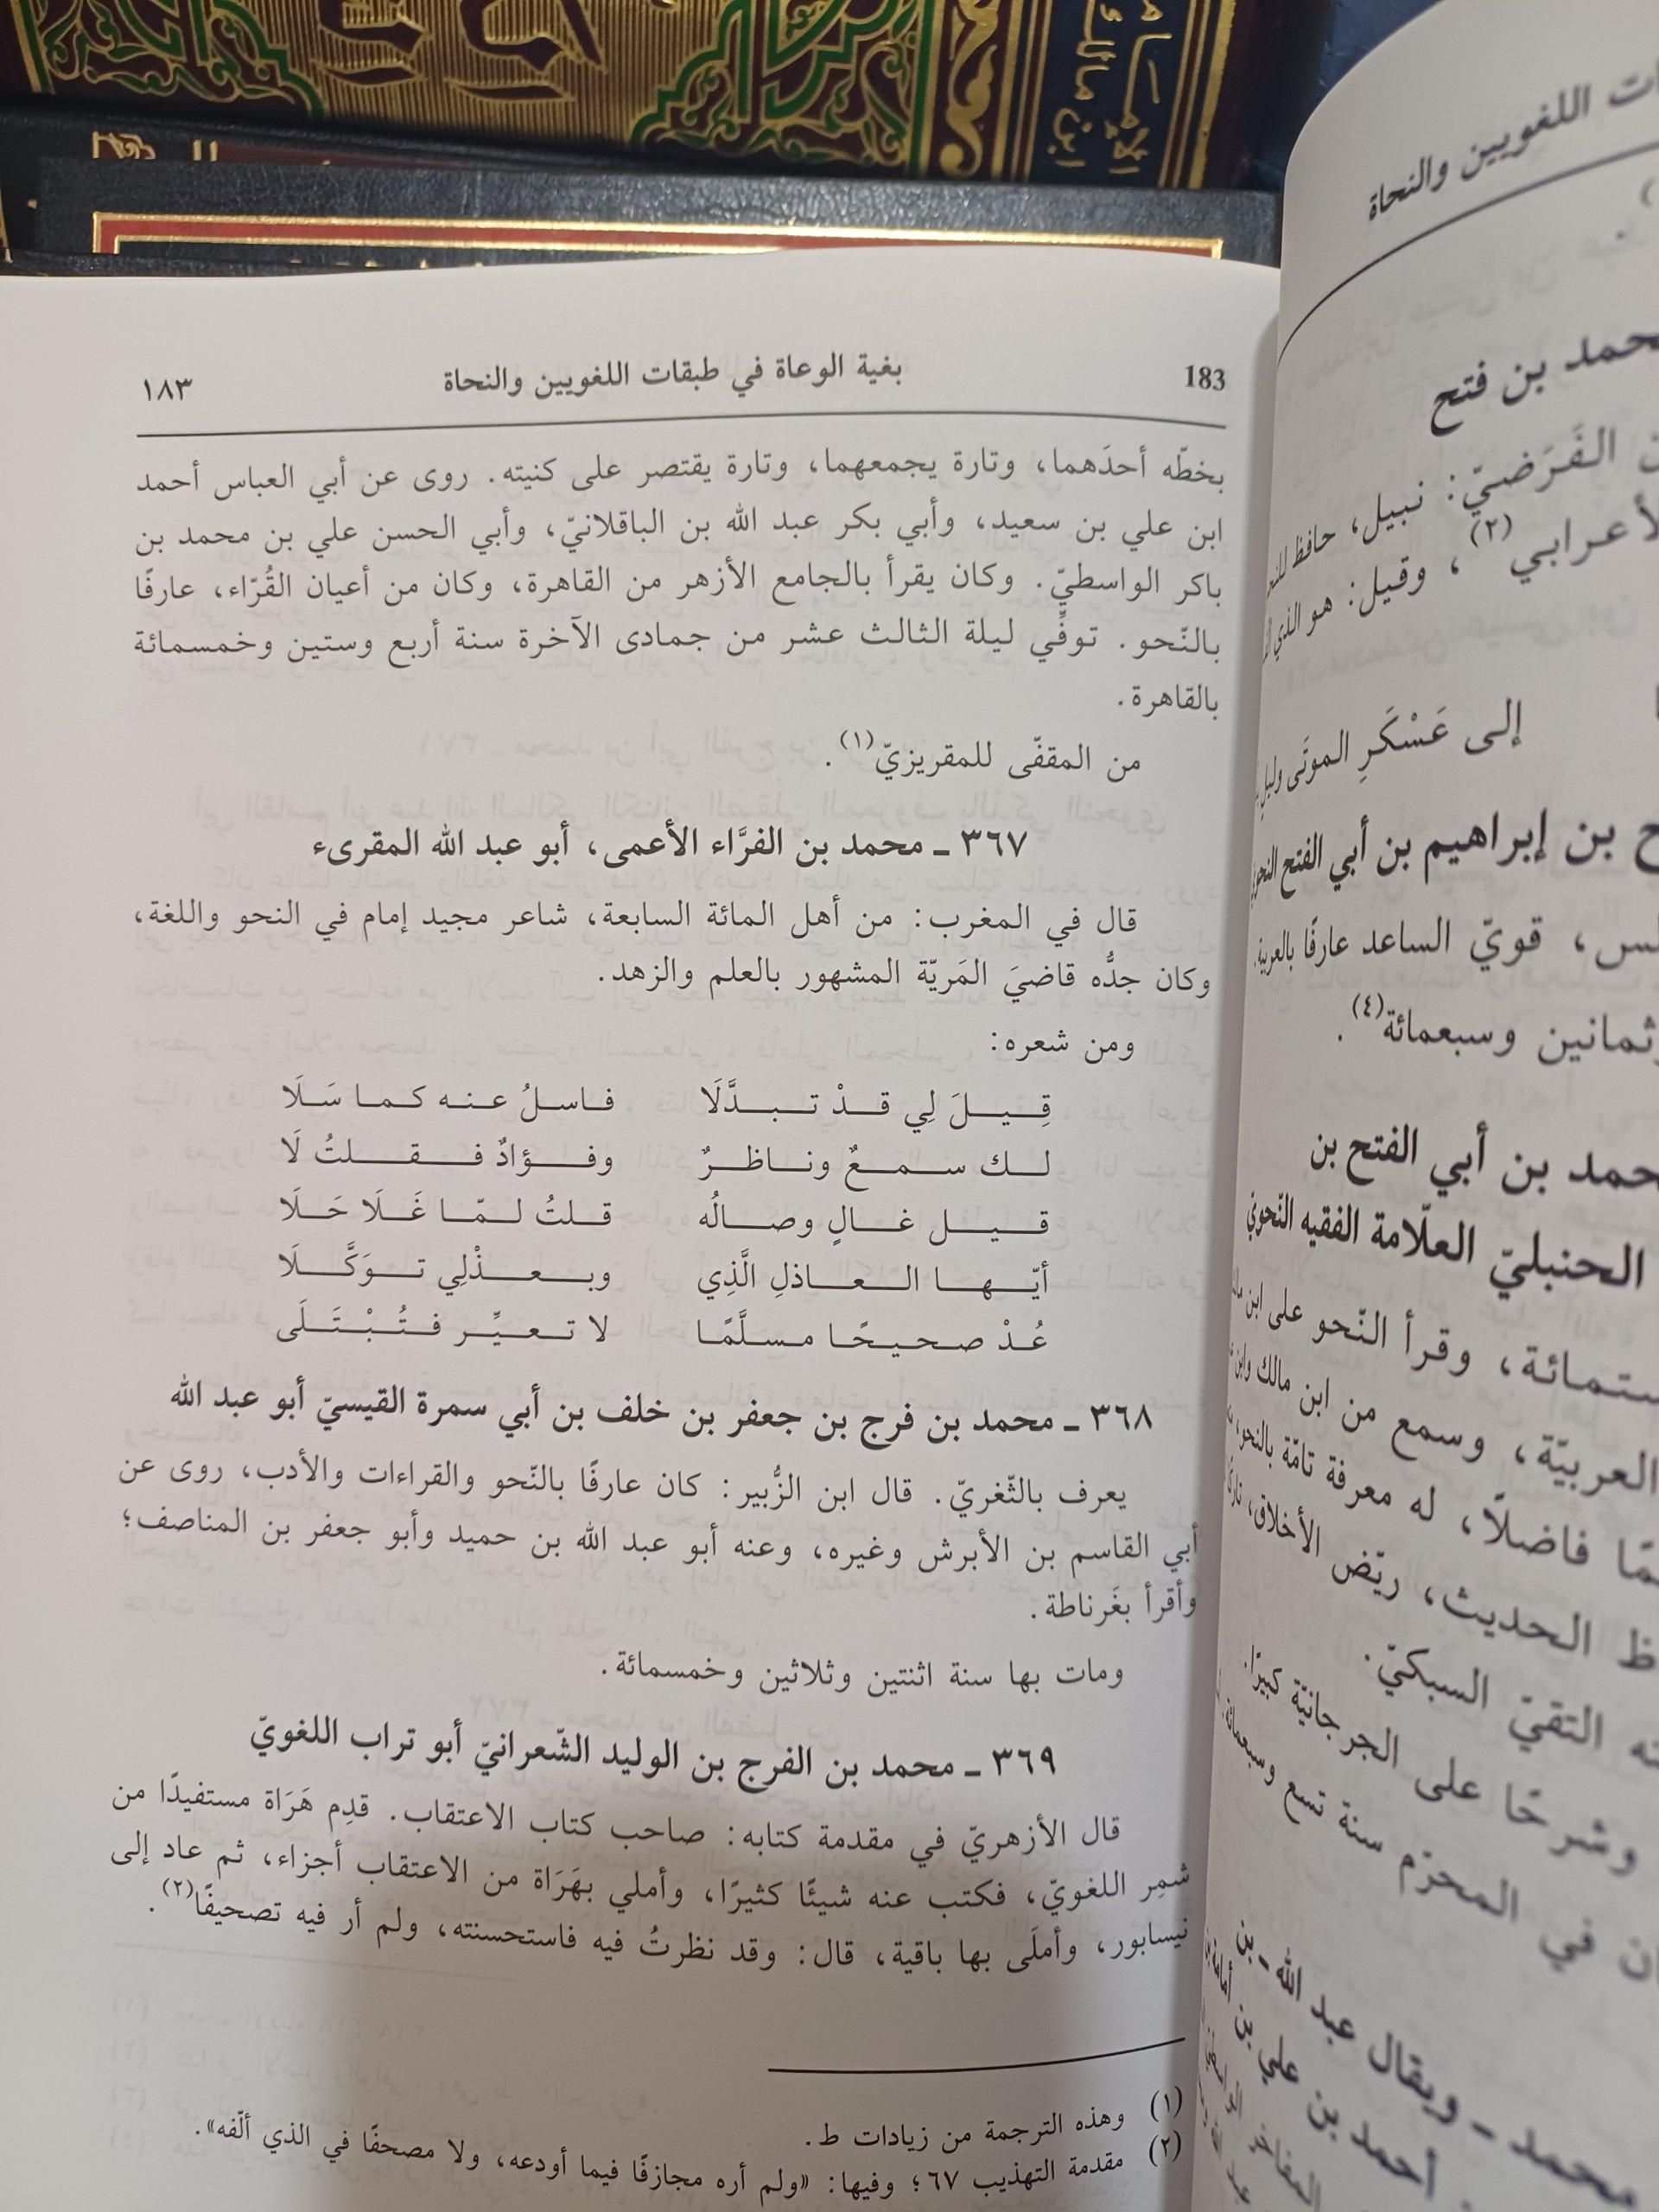 الإمام
ابن مالك
183 بغية الوعاة في طبقات اللغويين والنحاة ١٨٣
بخطّه أحدَهما، وتارة يجمعهما، وتارة يقتصر على كنيته. روى عن أبي العباس أحمد
ابن علي بن سعيد، وأبي بكر عبد الله بن الباقلانيّ، وأبي الحسن علي بن محمد بن
باكر الواسطيّ. وكان يقرأ بالجامع الأزهر من القاهرة، وكان من أعيان القُرّاء، عارفًا
بالنّحو. توفِّي ليلة الثالث عشر من جمادى الآخرة سنة أربع وستين وخمسمائة
بالقاهرة.
من المقفّى للمقريزيّ(١).
٣٦٧ ـ محمد بن الفرَّاء الأعمى، أبو عبد الله المقرىء
قال في المغرب: من أهل المائة السابعة، شاعر مجيد إمام في النحو واللغة،
وكان جدُّه قاضيَ المَريّة المشهور بالعلم والزهد.
ومن شعره:
قِيلَ لِي قدْ تبدَّلَا فاسلُ عنه كما سَلَا
لك سمعٌ وناظرٌ وفؤادٌ فقلتُ لَا
قيل غالٍ وصالُه قلتُ لمّا غَلَا حَلَا
أيّها العاذلِ الَّذِي وبعذْلِي توَكَّلَا
عُدْ صحيحًا مسلَّمًا لا تعيِّر فتُبْتَلَى
٣٦٨ ـ محمد بن فرج بن جعفر بن خلف بن أبي سمرة القيسيّ أبو عبد الله
يعرف بالثّغريّ. قال ابن الزُّبير: كان عارفًا بالنّحو والقراءات والأدب، روى عن
أبي القاسم بن الأبرش وغيره، وعنه أبو عبد الله بن حميد وأبو جعفر بن المناصف؛
وأقرأ بغَرناطة.
ومات بها سنة اثنتين وثلاثين وخمسمائة.
٣٦٩ ـ محمد بن الفرج بن الوليد الشّعرانيّ أبو تراب اللغويّ
قال الأزهريّ في مقدمة كتابه: صاحب كتاب الاعتقاب. قدِم هَرَاة مستفيدًا من
شمِر اللغويّ، فكتب عنه شيئًا كثيرًا، وأملي بهَرَاة من الاعتقاب أجزاء، ثم عاد إلى
نيسابور، وأملَى بها باقية، قال: وقد نظرتُ فيه فاستحسنته، ولم أر فيه تصحيفًا(٢).
(١) وهذه الترجمة من زيادات ط.
(٢) مقدمة التهذيب ٦٧؛ وفيها: «ولم أره مجازفًا فيما أودعه، ولا مصحفًا في الذي ألّفه».
اللغويين والنحاة
بن فتح
الفَرَضيّ: نبيل، حافظ
(٢)، وقيل: هو الذي
إلى عَسْكَرِ الموتَى
بن إبراهيم بن أبي الفتح
قويّ الساعد عارفًا بالعربية.
وسبعمائة(٤).
بن أبي الفتح بن
الحنبليّ العلّامة الفقيه النّحويّ
وقرأ النّحو على ابن
العربيّة، وسمع من ابن مالك
فاضلًا، له معرفة تامّة بالنحو،
الحديث، ريّض الأخلاق،
التقيّ السبكيّ.
وشرحًا على الجرجانيّة كبيرًا.
في المحرّم سنة تسع وسبعمائة.
محمد ـ ويقال عبد الله ـ بن
أحمد بن علي بن